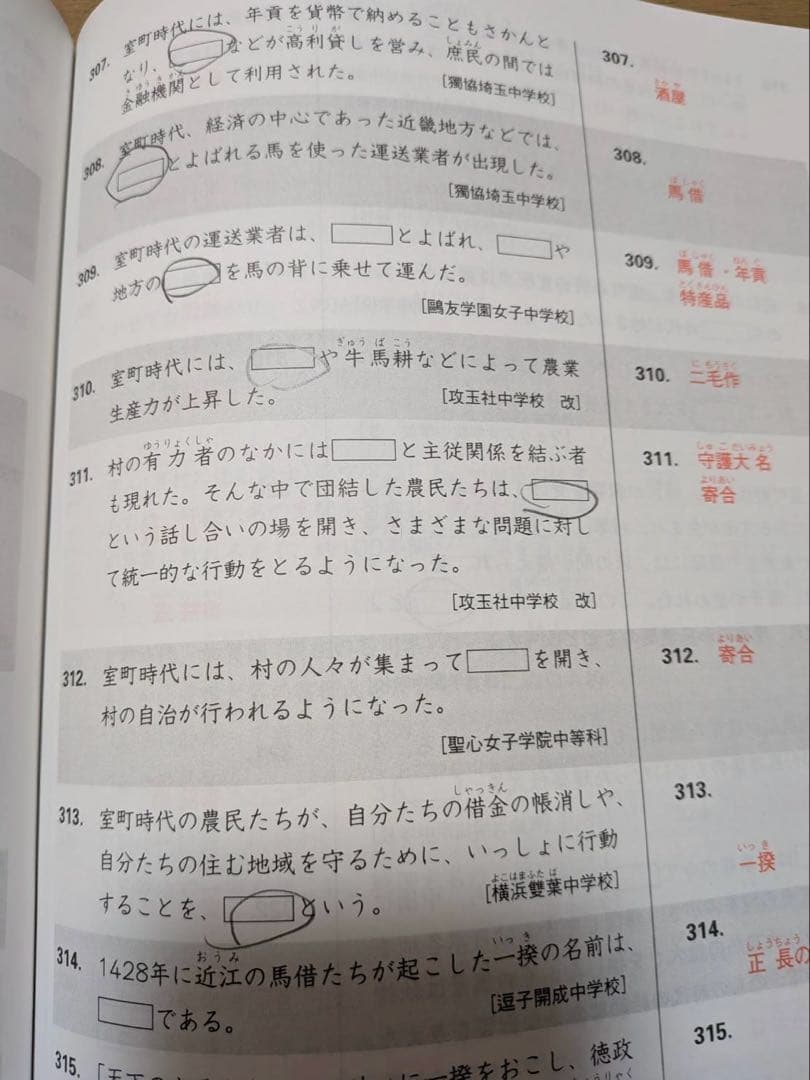 307. 室町時代には、年貢を貨幣で納めることもさかんと
なり、などが高利貸しを営み、庶民の間では
こうりが
しょみん
金融機関として利用された。
[獨協埼玉中学校]
307.
さかや
酒屋
308. 室町時代、経済の中心であった近畿地方などでは、
とよばれる馬を使った運送業者が出現した。
[獨協埼玉中学校]
308.
ばしゃく
馬借
309. 室町時代の運送業者は、とよばれ、や
地方のを馬の背に乗せて運んだ。
[鷗友学園女子中学校]
309. 馬借・年貢
ばしゃく ねんぐ
特産品
とくさんひん
310. 室町時代には、や牛馬耕などによって農業
ぎゅうばこう
生産力が上昇した。
[攻玉社中学校 改]
310. 二毛作
にもうさく
311. 村の有力者のなかにはと主従関係を結ぶ者
ゆうりょくしゃ
も現れた。そんな中で団結した農民たちは、
という話し合いの場を開き、さまざまな問題に対し
て統一的な行動をとるようになった。
[攻玉社中学校 改]
311. 守護大名
しゅごだいみょう
寄合
よりあい
312. 室町時代には、村の人々が集まってを開き、
村の自治が行われるようになった。
[聖心女子学院中等科]
312. 寄合
よりあい
313. 室町時代の農民たちが、自分たちの借金の帳消しや、
しゃっきん
自分たちの住む地域を守るために、いっしょに行動
することを、という。
[横浜雙葉中学校]
よこはまふたば
313.
いっき
一揆
314. 1428年に近江の馬借たちが起こした一揆の名前は、
おうみ
いっき
である。
[逗子開成中学校]
314.
しょうちょう
正長の
315.
に一揆をおこし、徳政
315.